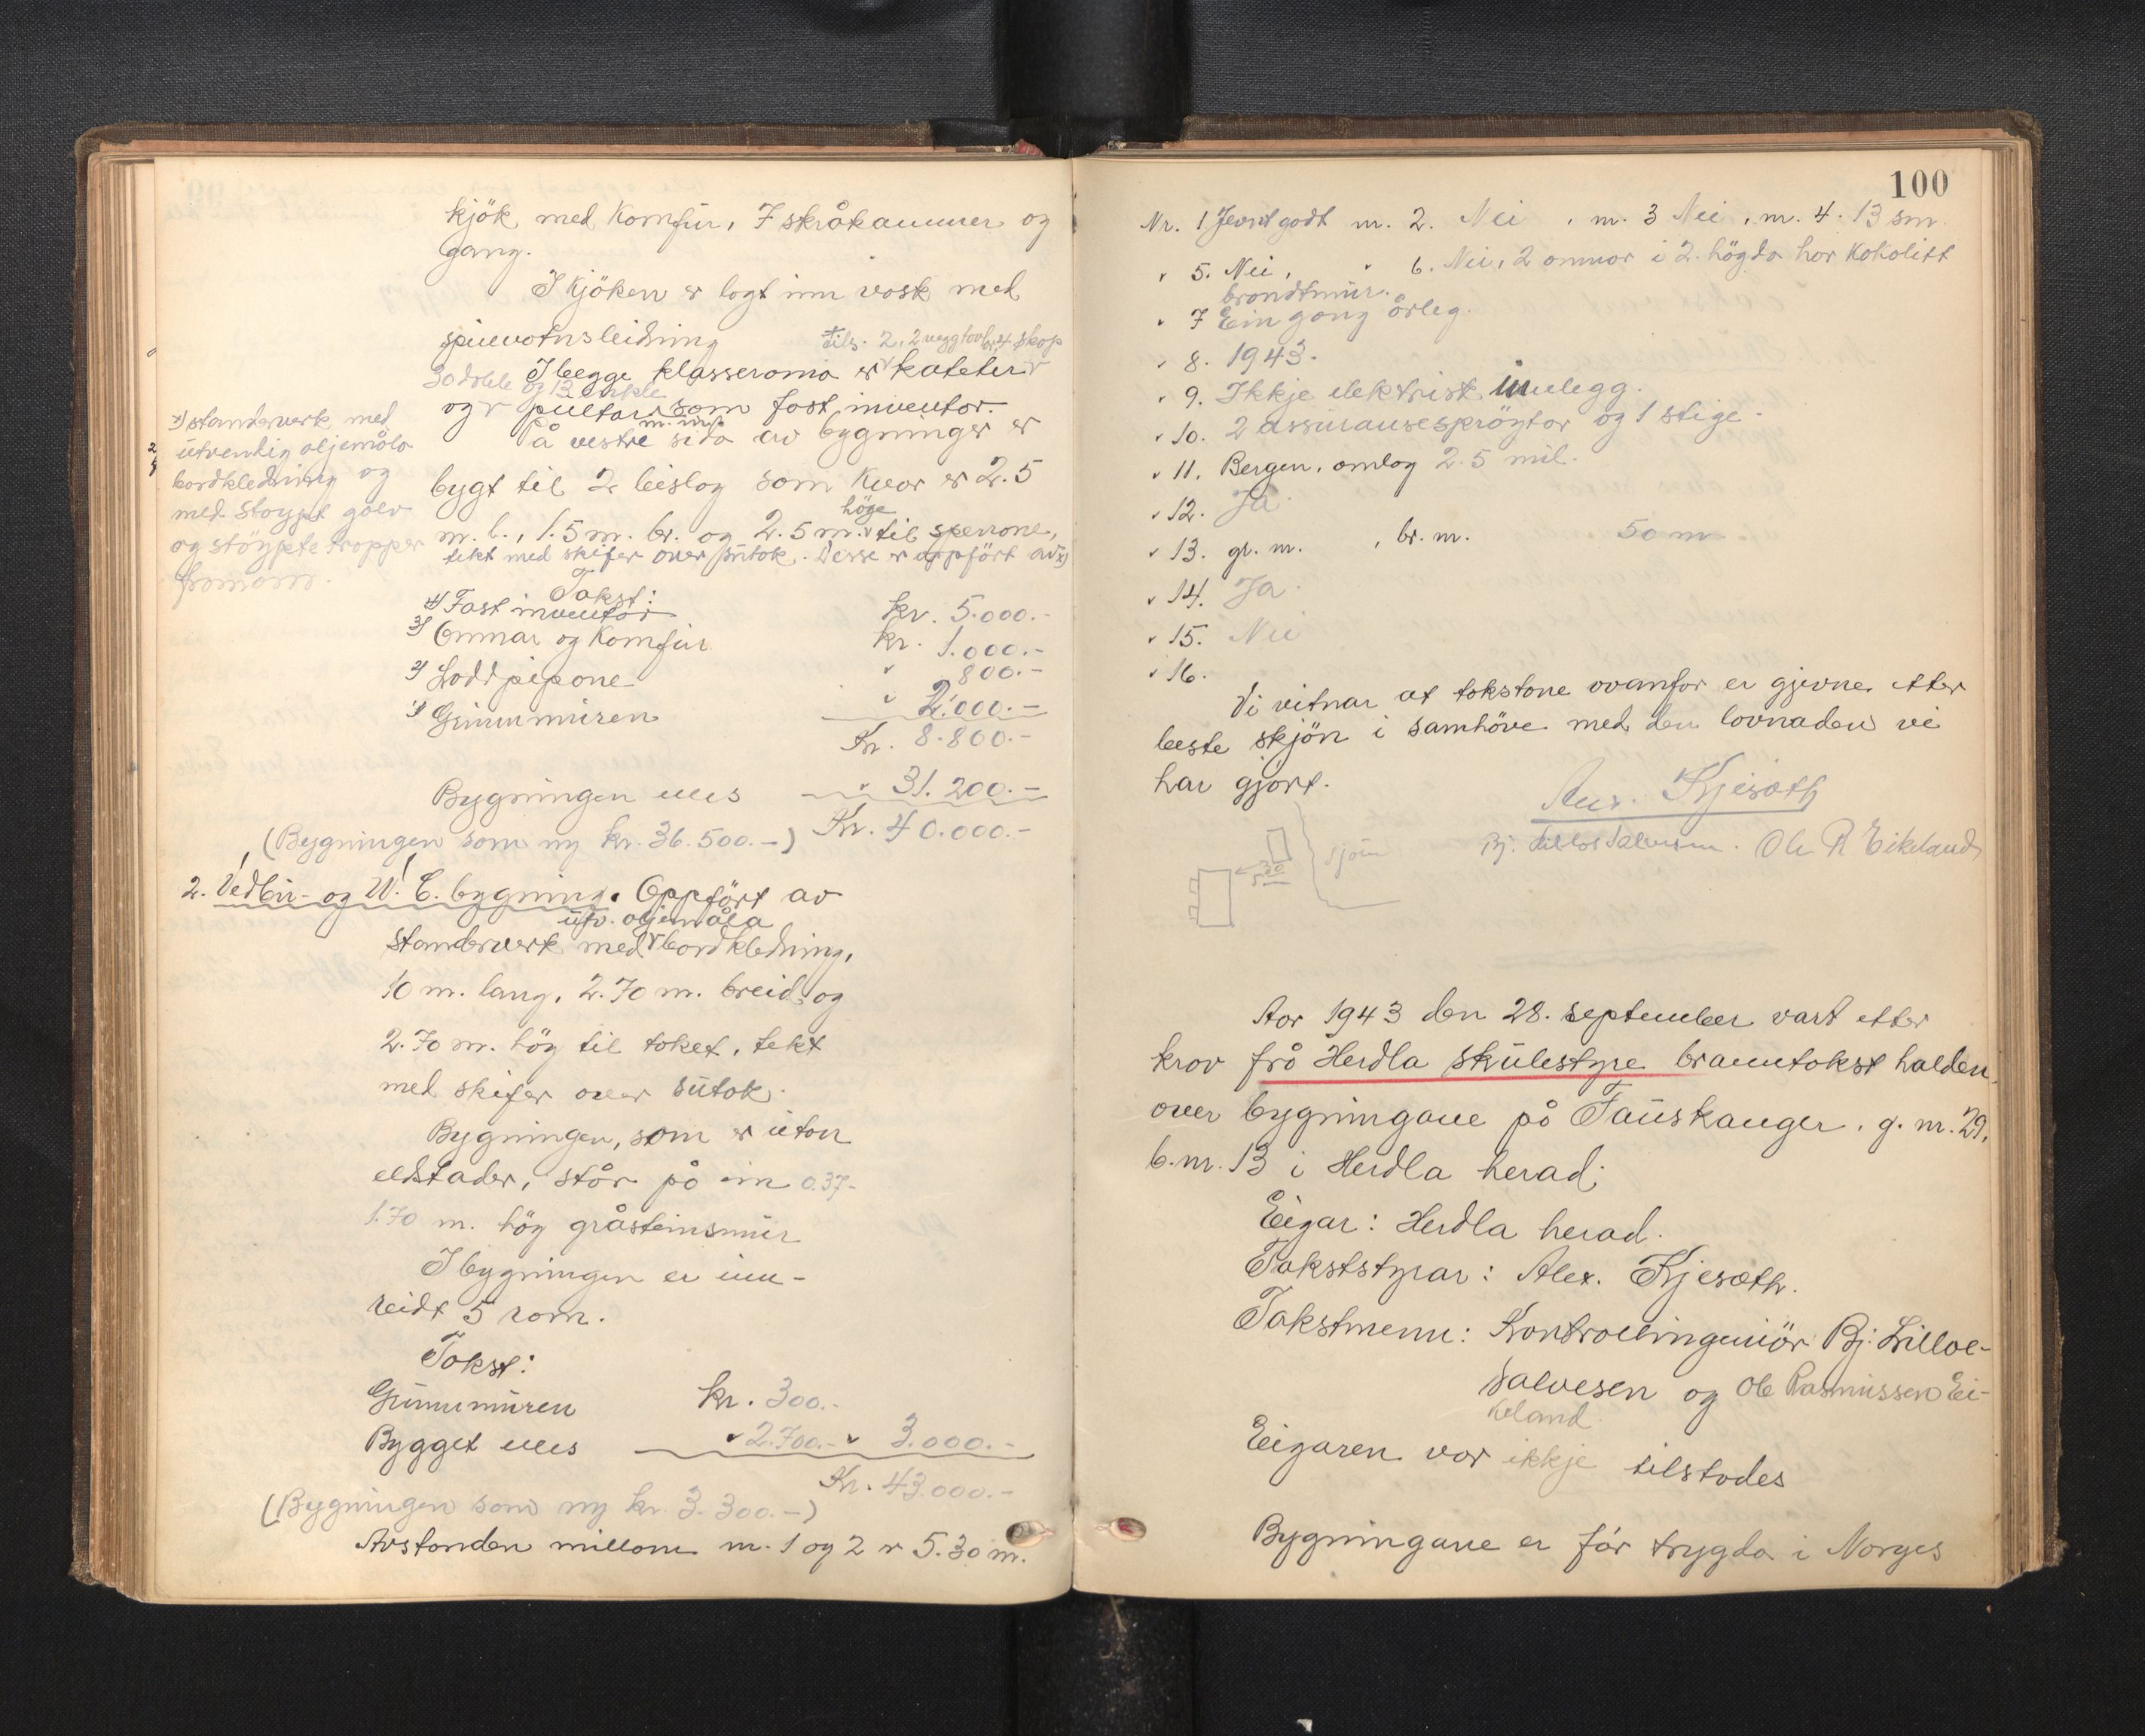 kjök, med Komfür, 7 skråkammer og
gang.
I Kjöken er lagt inn vask med
spilevatnsleidning
tils. 2, 2 veggtavler, 4 skap
I begge klasseroma er kateter
30 doble og 13 enkle
og pultar som fast inventar.
m.m.
å vestre sida av bygninger er
bygt til 2 bislag som kvar er 2.5
høge
m. l., 1.5 m. br. og 2.5 m. til sperrone,
tekt med skifer over sutak. Desse er oppført av x)
x) standverk med
utvendig oljemåla
bordkledning og
med støypt golv
og støypte trapper
framom.
Takst:
4) Fast inventar kr. 5.000.-
3) Omnar og Komfür kr. 1.000.-
2) Loddpipone " 800.-
1) Grunnmuren " 2.000.-
Kr. 8.800.-
Bygningen elles " 31.200.-
(Bygningen som ny kr. 36.500.-) Kr. 40.000.-
2. Vedbu- og W. C. bygning. Oppfört av
utv. oljemåla
standverk med bordkledning,
10 m. lang, 2.70 m. breid og
2.70 m. hög til taket, tekt
med skifer over sutak.
Bygningen, som er utan
eldstader, står på ein 0.37-
1.70 m. hög gråsteinsmur
I bygningen er inn-
reidt 5 rom.
Takst:
Grunnmuren kr. 300.-
Bygget elles " 2.700.- " 3.000.-
Kr. 43.000.-
(Bygningen som ny kr. 3.300.-)
Avstanden millom nr. 1 og 2 er 5.30 m.
100
Nr. 1 Jevnt godt nr. 2. Nei, nr. 3 Nei, nr. 4. 13 sm.
" 5. Nei, " 6. Nei, 2 omnar i 2. högda har Koholitt
brandtmur.
" 7 Ein gong årleg.
" 8. 1943.
" 9. Ikkje elektrisk innlegg.
" 10. 2 assuransesprøytor og 1 stige.
" 11. Bergen, omlag 2.5 mil.
" 12. Ja
" 13. gr. m. , br. m. 50 m
" 14. Ja.
" 15. Nei
" 16.
Vi vitnar at takstane ovanfor er gjevne etter
beste skjön i samhöve med den lovnaden vi
har gjort.
Alex. Kjesæth
Bj. Lilloe Salvesen. Ole R Eikeland
sjøen
5.30
Aar 1943 den 28. september vart etter
krav frå Herdla skulestyre branntakst halden
over bygningane på Tauskanger, g. nr. 29,
b. nr. 13 i Herdla herad.
Eigar: Herdla herad.
Takststyrar: Alex. Kjesæth.
Takstmenn: Kontrollingeniör Bj. Lilloe-
Salvesen og Ole Rasmussen Ei-
keland.
Eigaren var ikkje tilstades
Bygningane er för trygda i Norges